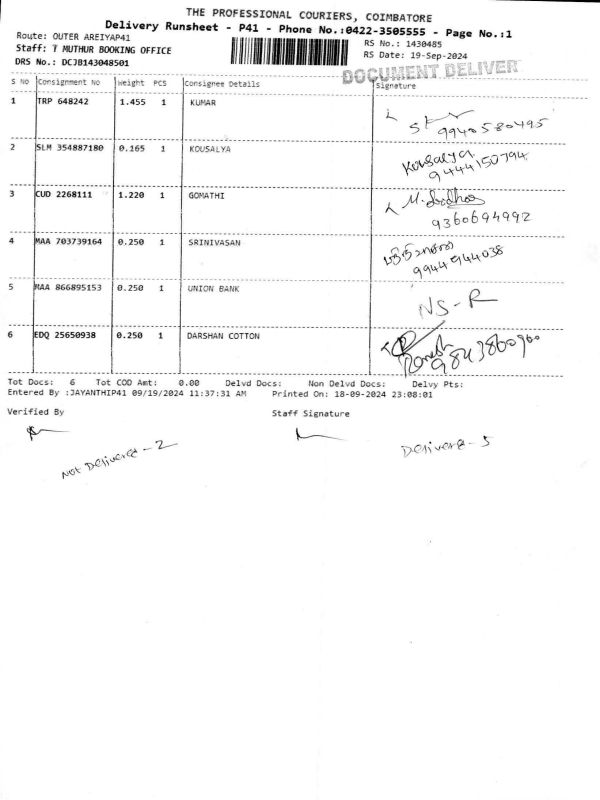 THE PROFESSIONAL COURIERS, COIMBATORE
Delivery Runsheet - P41 - Phone No.:0422-3505555 - Page No.:1
Route: OUTER AREIYAP41
RS No.: 1430485
Staff: T MUTHUR BOOKING OFFICE
RS Date: 19-Sep-2024
DRS No.: DCJB143048501
DOCUMENT DELIVER
S No Consignment No Weight PCS Consignee Details Signature
1 TRP 648242 1.455 1 KUMAR
9940580495
2 SLM 354887180 0.165 1 KOUSALYA Kousalya
9444150794
3 CUD 2268111 1.220 1 GOMATHI
9360694992
4 MAA 703739164 0.250 1 SRINIVASAN
9944944038
5 MAA 866895153 0.250 1 UNION BANK NS-R
6 EDQ 25650938 0.250 1 DARSHAN COTTON Ramesh
9843860960
Tot Docs: 6 Tot COD Amt: 0.00 Delvd Docs: Non Delvd Docs: Delvy Pts:
Entered By :JAYANTHIP41 09/19/2024 11:37:31 AM Printed On: 18-09-2024 23:08:01
Verified By Staff Signature
Not Delivered - 2
Delivered - 5